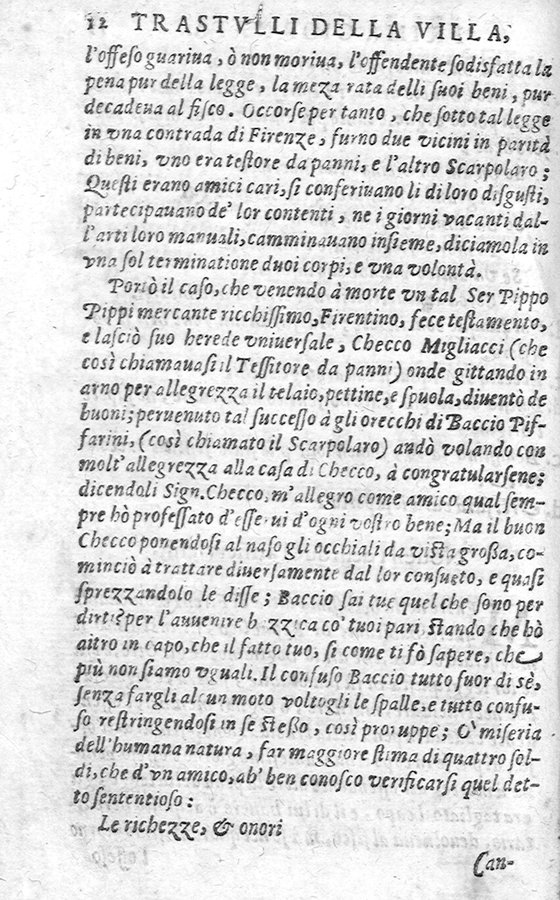 12 TRASTVLLI DELLA VILLA,
l'offeso guariua, ò non moriua, l'offendente sodisfatta la
pena pur della legge, la meza rata delli suoi beni, pur
decadeua al fisco. Occorse per tanto, che sotto tal legge
in vna contrada di Firenze, furno due vicini in parità
di beni, vno era testore da panni, e l'altro Scarpolaro;
Questi erano amici cari, si conferiuano li di loro disgusti,
partecipauano de' lor contenti, ne i giorni vacanti dal-
l'arti loro manuali, camminauano insieme, diciamola in
vna sol terminatione duoi corpi, e vna volontà.
Portò il caso, che venendo à morte vn tal Ser Pippo
Pippi mercante ricchissimo, Firentino, fece testamento,
e lasciò suo herede vniuersale, Checco Migliacci (che
così chiamauasi il Tessitore da panni) onde gittando in
arno per allegrezza il telaio, pettine, e spuola, diuentò de
buoni; peruenuto tal successo à gli orecchi di Baccio Pif-
farini, (così chiamato il Scarpolaro) andò volando con
molt'allegrezza alla casa di Checco, à congratularsene;
dicendoli Sign. Checco, m'allegro come amico qual sem-
pre hò professato d'esserui d'ogni vostro bene; Ma il buon
Checco ponendosi al naso gli occhiali da vista grossa, co-
minciò à trattare diuersamente dal lor consueto, e quasi
sprezzandolo le disse; Baccio sai tue quel che sono per
dirti? per l'auuenire bazzica co' tuoi pari, stando che hò
altro in capo, che il fatto tuo, si come ti fò sapere, che
più non siamo vguali. Il confuso Baccio tutto fuor di sè,
senza fargli alcun moto voltogli le spalle, e tutto confu-
so restringendosi in se stesso, così proruppe; O' miseria
dell'humana natura, far maggiore stima di quattro sol-
di, che d'vn amico, ab' ben conosco verificarsi quel det-
to sententioso:
Le richezze, & onori
Can-